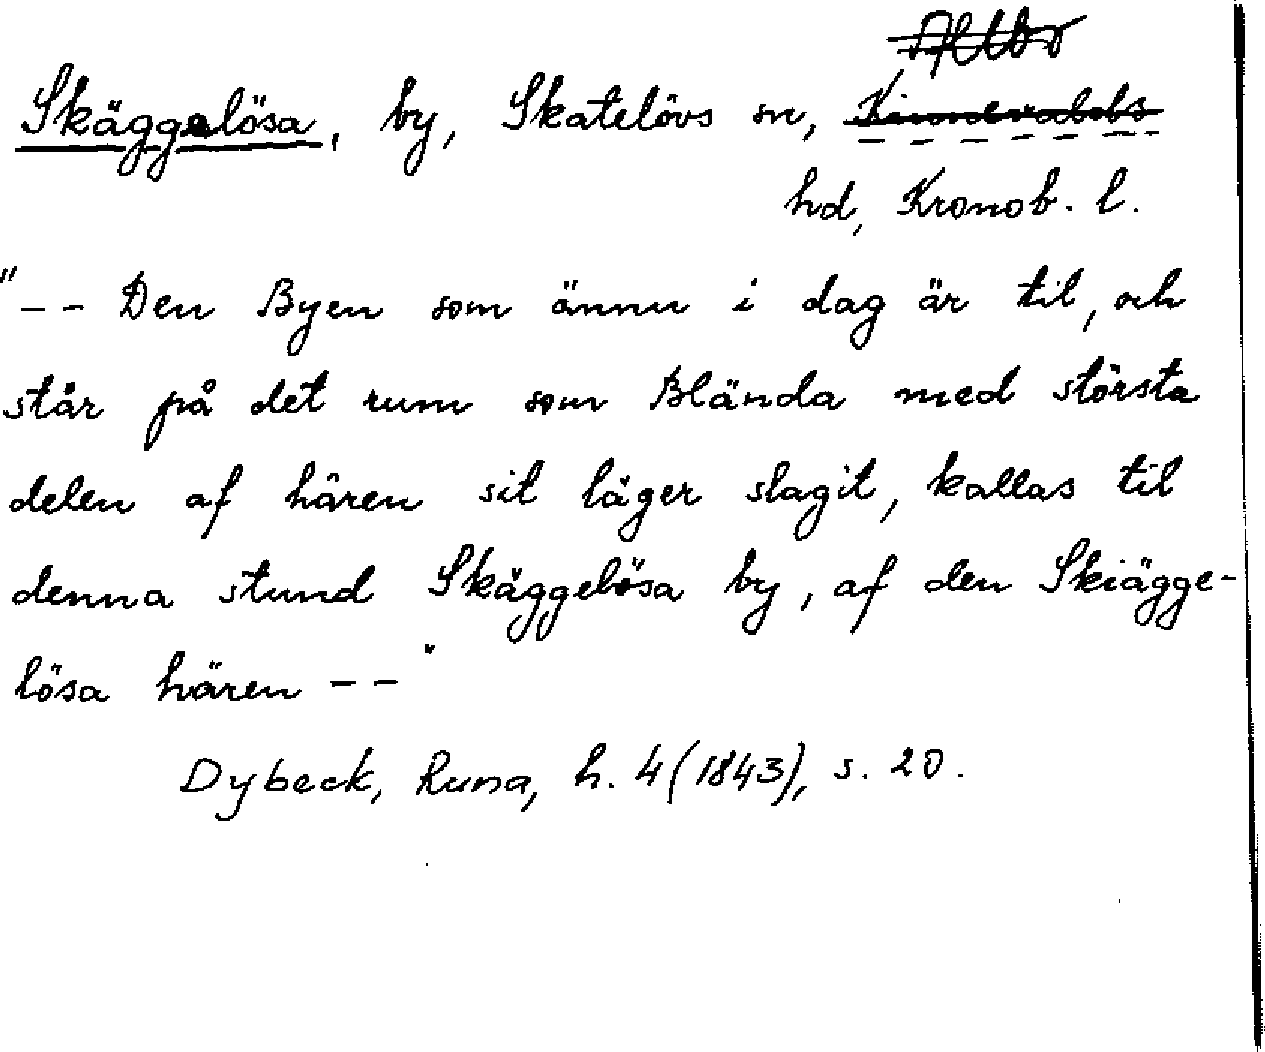 Allbo
Skäggalösa, by, Skatelövs sn, Kinnevalds
hd, Kronob. l.
"-- Den Byen som ännu i dag är til, och
står på det rum som Blända med största
delen af hären sit läger slagit, kallas til
denna stund Skäggelösa by, af den Skiägge-
lösa hären --"
Dybeck, Runa, h. 4 (1843), s. 20.